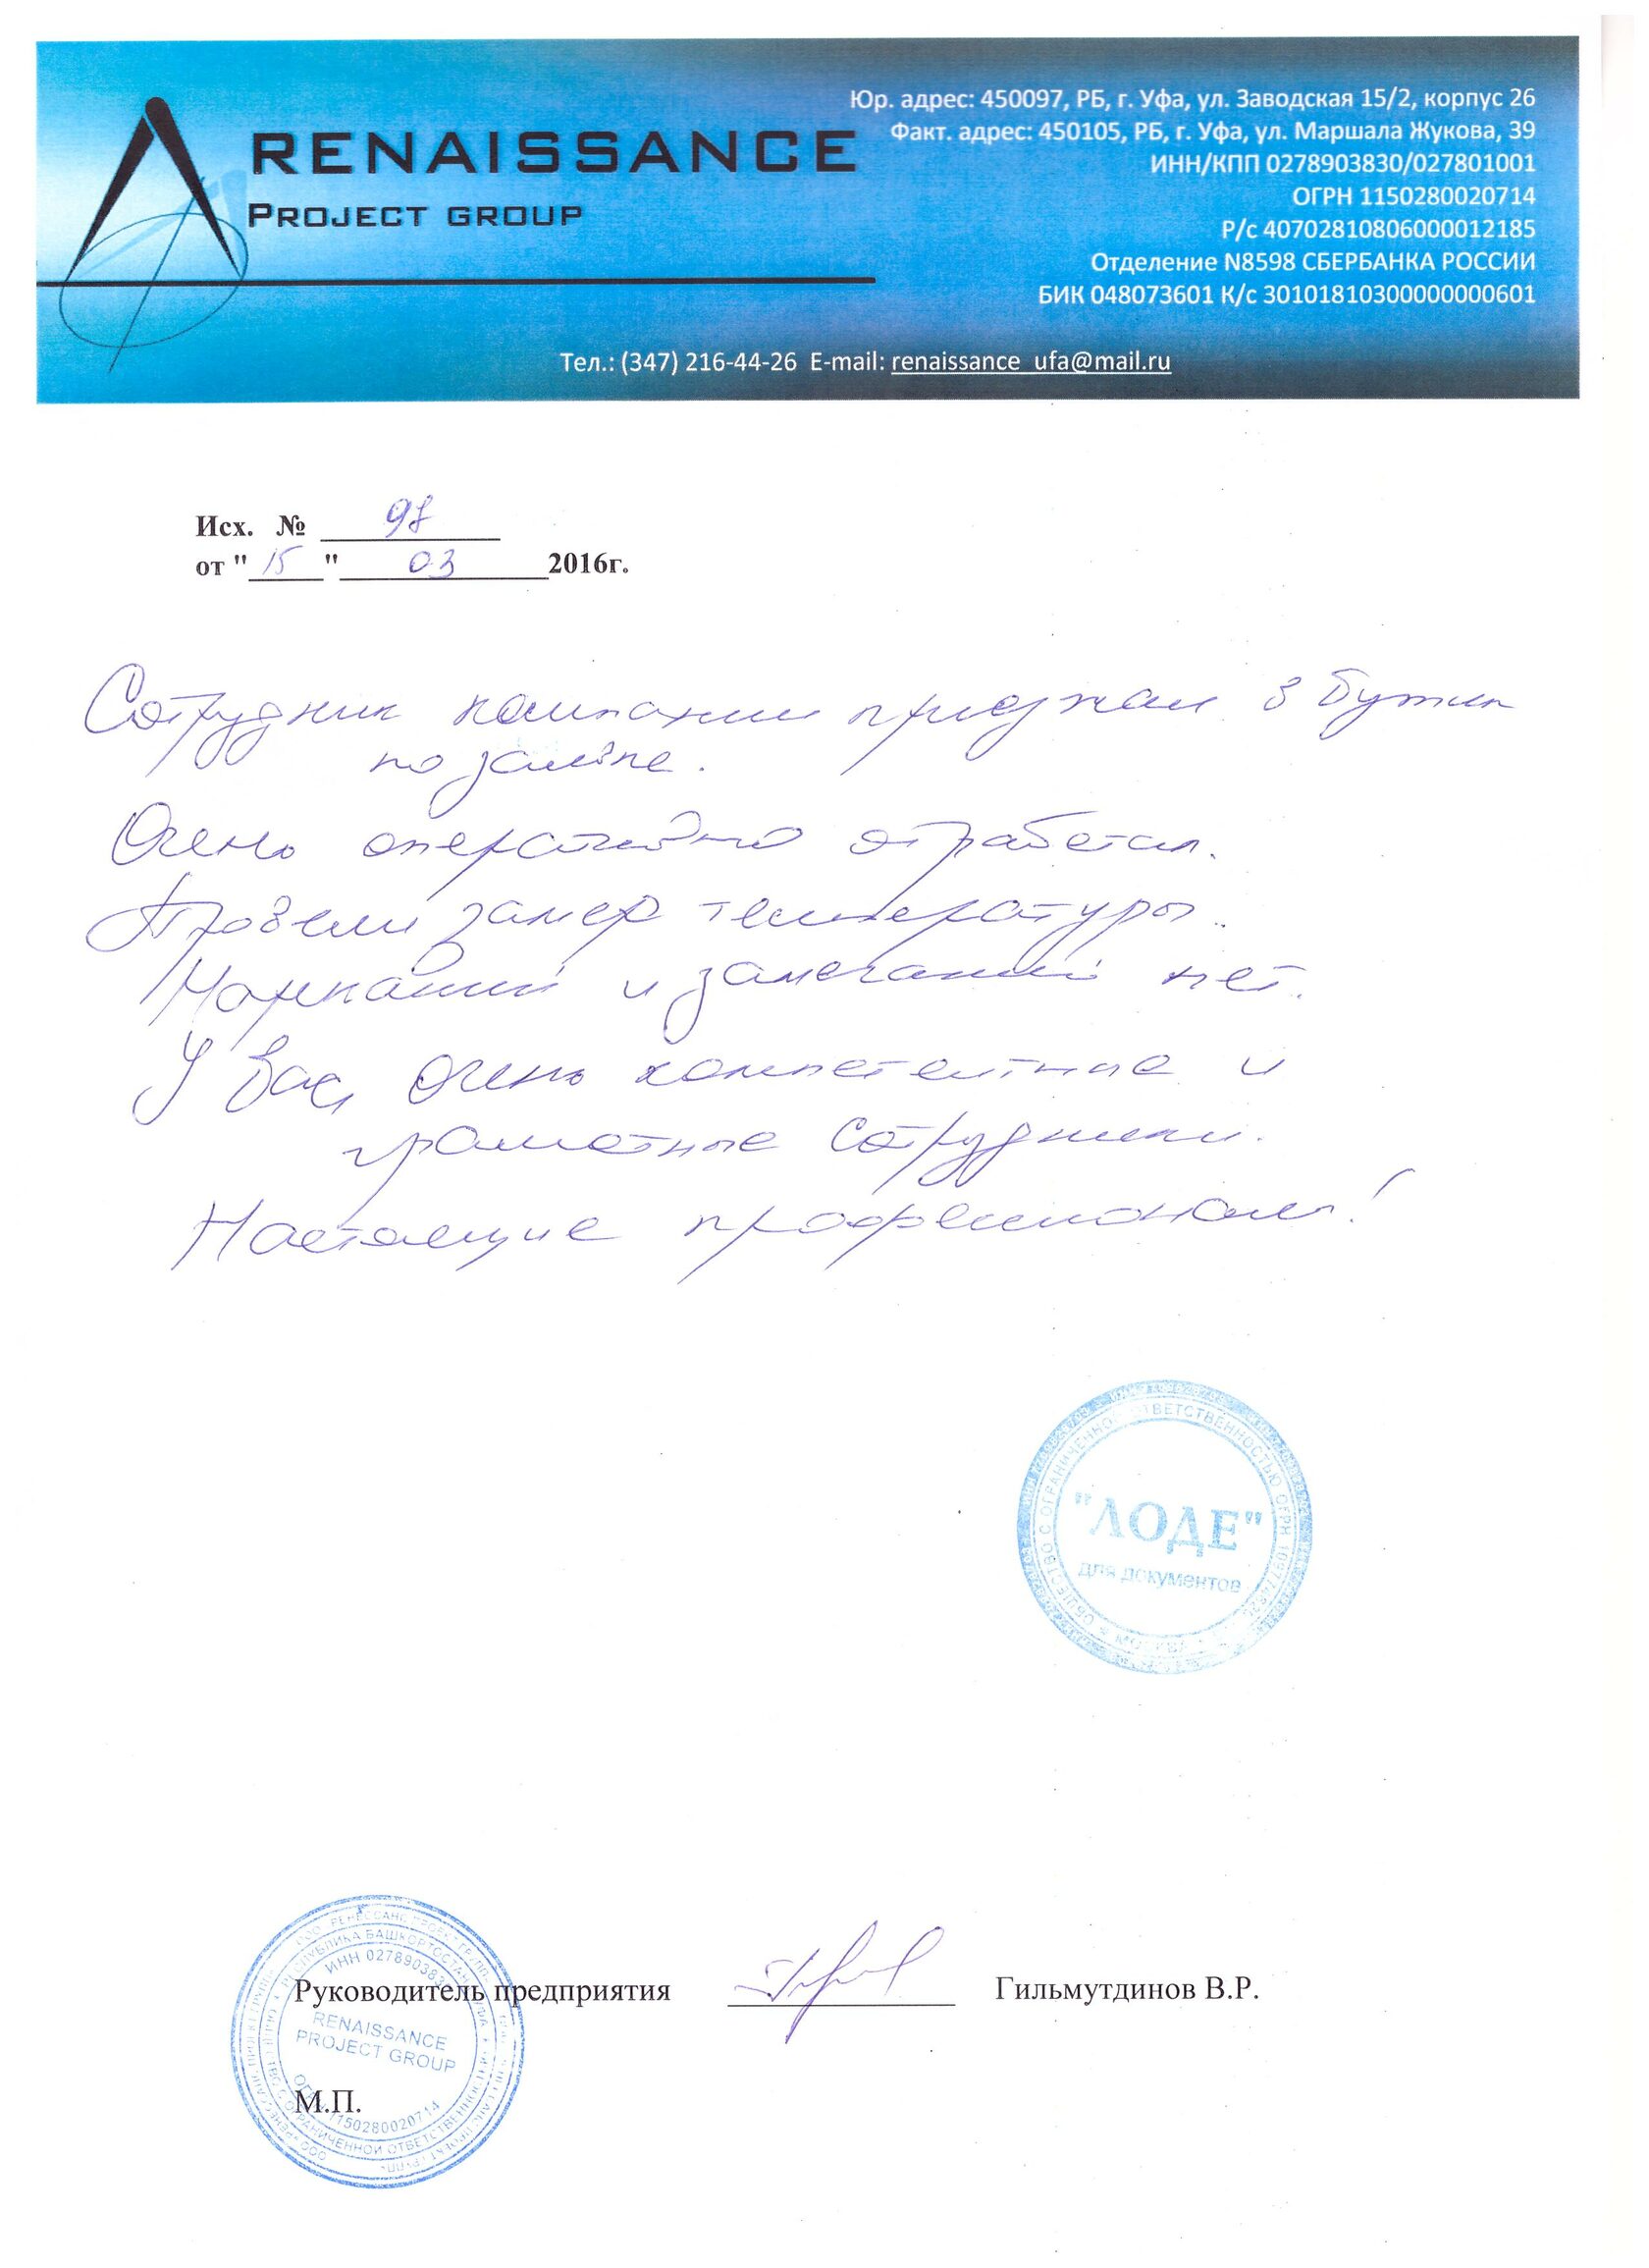 RENAISSANCE
PROJECT GROUP
Юр. адрес: 450097, РБ, г. Уфа, ул. Заводская 15/2, корпус 26
Факт. адрес: 450105, РБ, г. Уфа, ул. Маршала Жукова, 39
ИНН/КПП 0278903830/027801001
ОГРН 1150280020714
Р/с 40702810806000012185
Отделение N8598 СБЕРБАНКА РОССИИ
БИК 048073601 К/с 30101810300000000601
Тел.: (347) 216-44-26 E-mail: renaissance_ufa@mail.ru
Исх. №
от "15" 03 2016г.
Сотрудник компании приезжал в бутик
по заявке.
Очень оперативно отработал.
Провели замер температуры.
Нареканий и замечаний нет.
У Вас очень компетентные и
грамотные сотрудники.
Настоящие профессионалы!
ОБЩЕСТВО С ОГРАНИЧЕННОЙ ОТВЕТСТВЕННОСТЬЮ ОГРН
"ЛОДЕ"
для документов
РЕСПУБЛИКА БАШКОРТОСТАН
ИНН 0278903830
Руководитель предприятия Гильмутдинов В.Р.
RENAISSANCE
PROJECT GROUP
М.П.
ОГРН 1150280020714
ОГРАНИЧЕННОЙ ОТВЕТСТВЕННОСТЬЮ